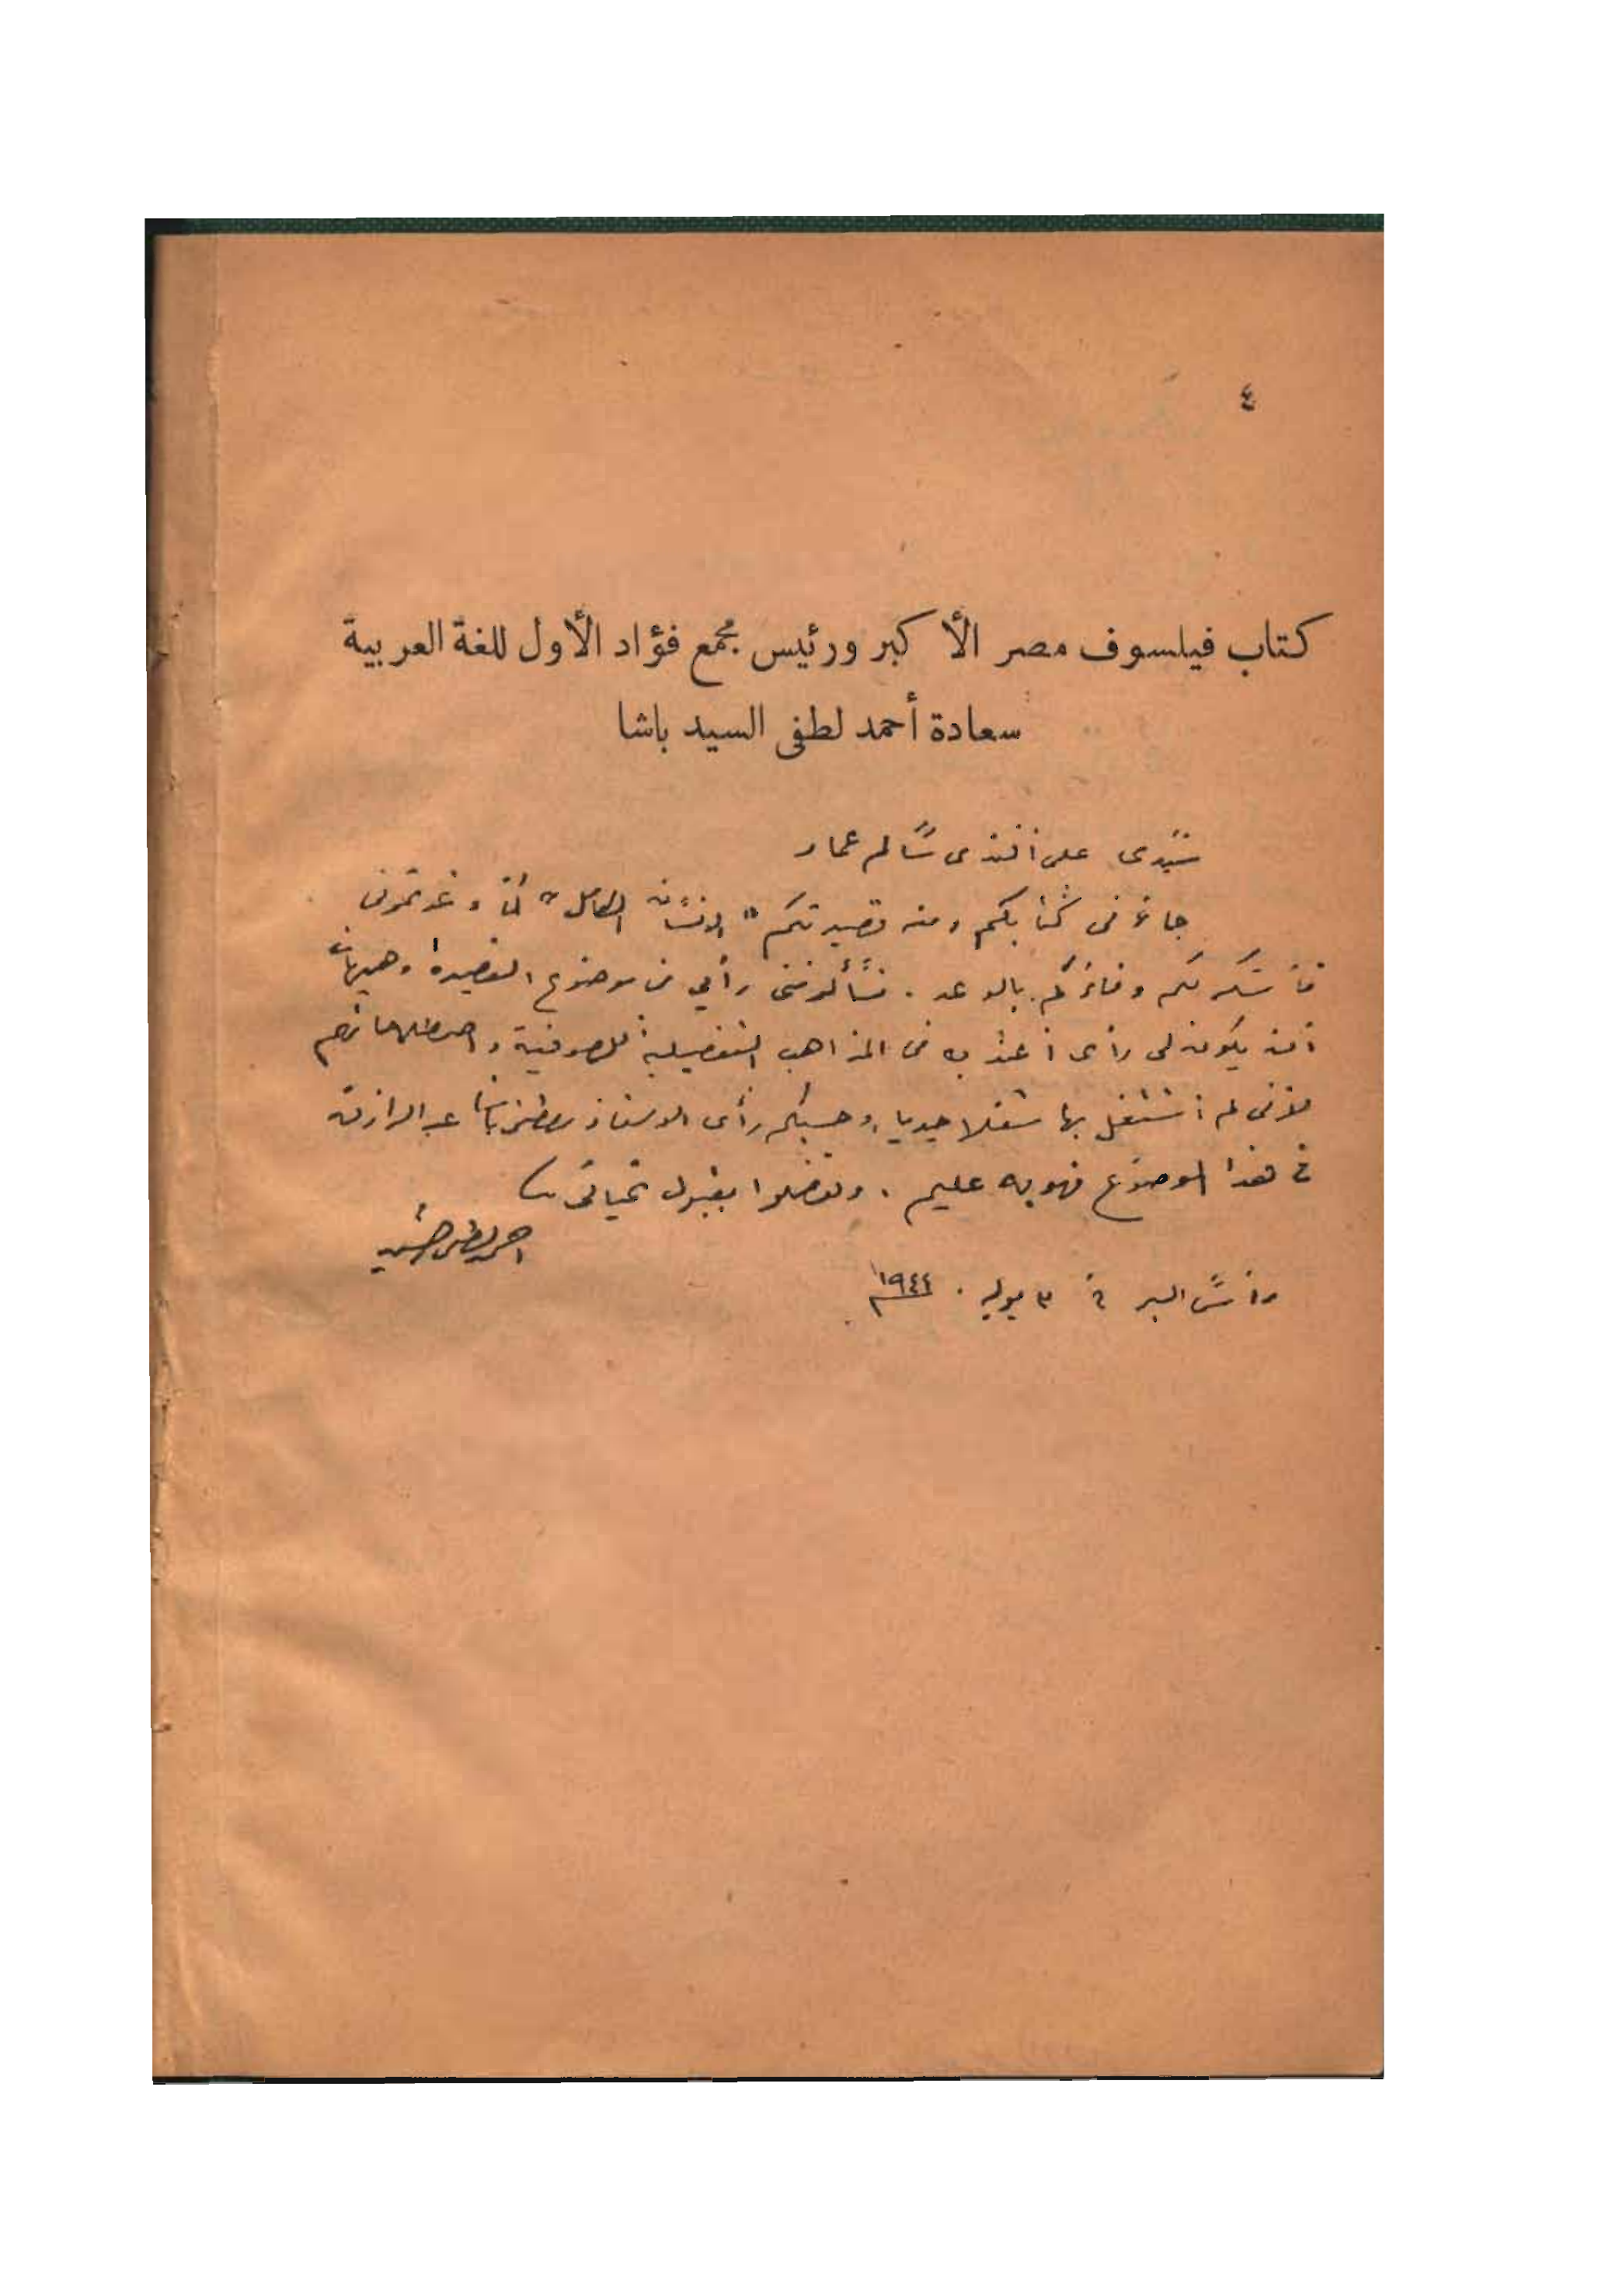 ٤
كتاب فيلسوف مصر الأكبر ورئيس مجمع فؤاد الأول للغة العربية
سعادة أحمد لطفى السيد باشا
سيدى على افندى سالم عمار
جاءنى كتابكم ومنه قصيدتكم " الانسان الكامل " التى وعدتمونى
فأشكر لكم وفاءكم بالوعد . تسألوننى رأيى فى موضوع القصيدة وهيهات
أن يكون لى رأى أعتد به فى المذاهب التفصيلية للصوفية واصطلاحاتهم
لأنى لم أشتغل بها شغلا جديا ، وحسبكم رأى الاستاذ مصطفى باشا عبد الرازق
فى هذا الموضوع فهو به عليم . وتفضلوا بقبول تحياتى
احمد لطفى السيد
رأس البر فى ٣ يوليه ١٩٤٤